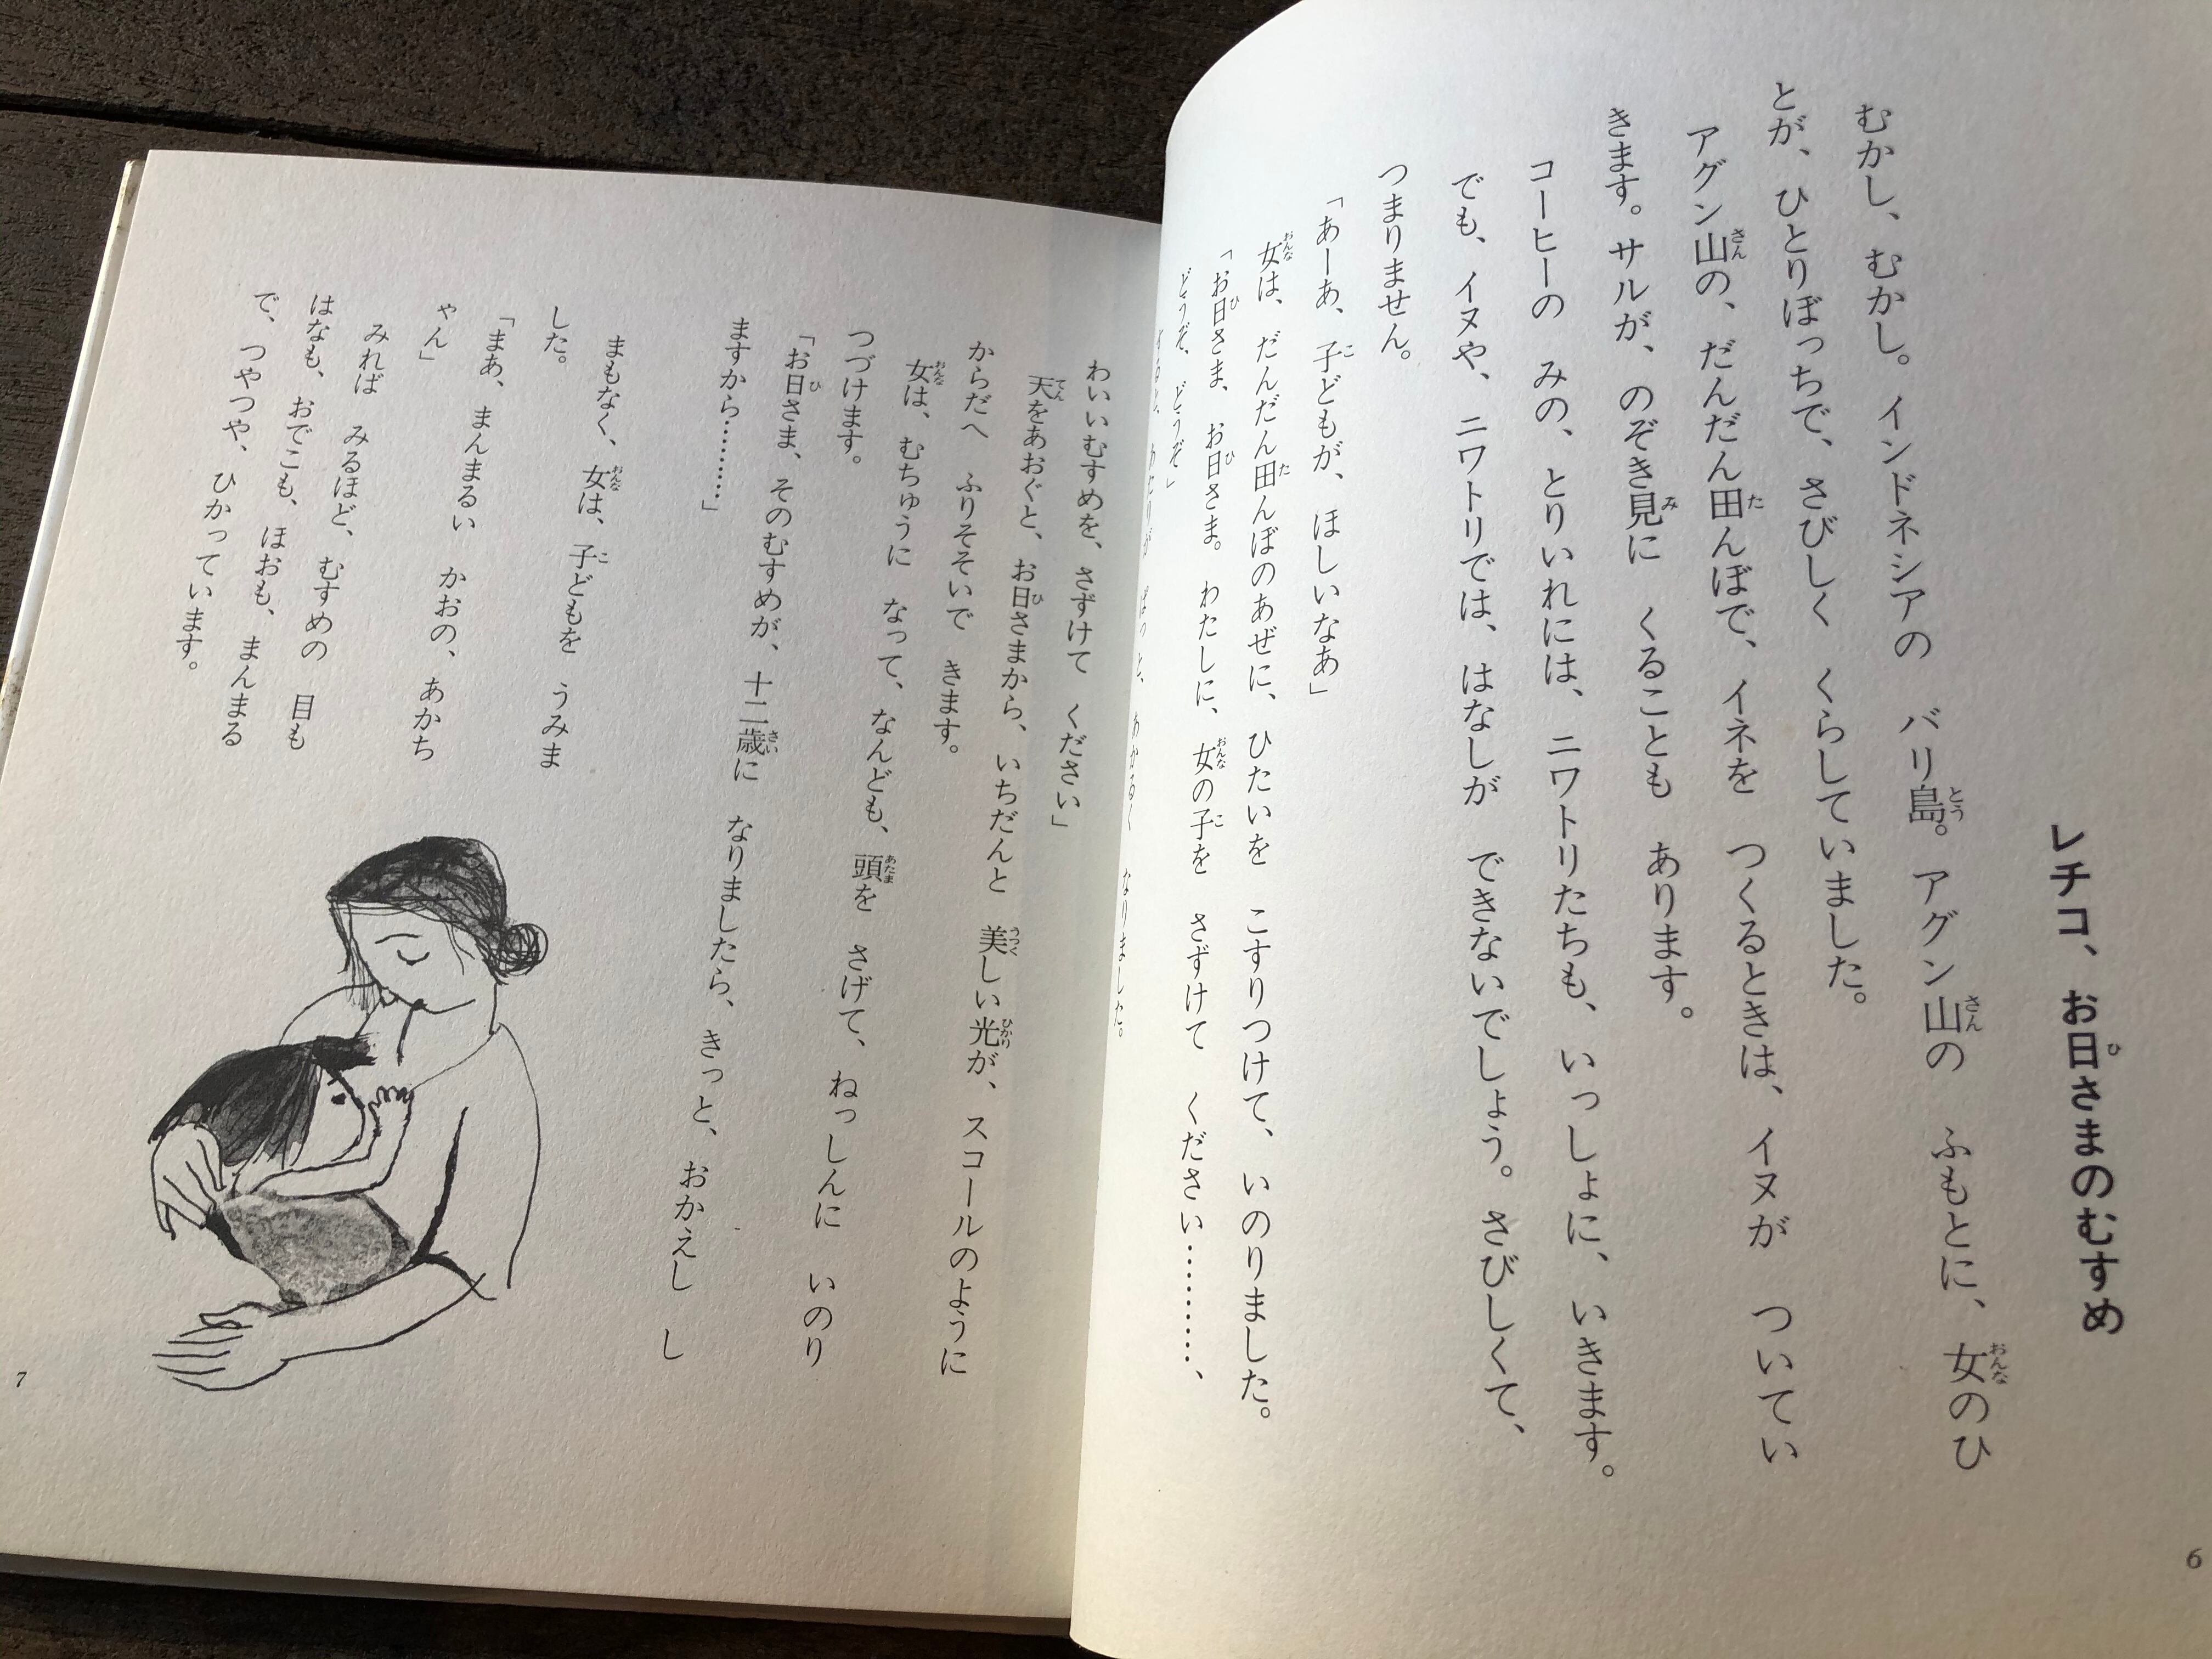 レチコ、お日さまのむすめ
むかし、むかし。インドネシアの　バリ島。アグン山の　ふもとに、女のひ
とが、ひとりぼっちで、さびしく　くらしていました。
アグン山の、だんだん田んぼで、イネを　つくるときは、イヌが　ついてい
きます。サルが、のぞき見に　くることも　あります。
コーヒーの　みの、とりいれには、ニワトリたちも、いっしょに、いきます。
でも、イヌや、ニワトリでは、はなしが　できないでしょう。さびしくて、
つまりません。
「あーあ、子どもが、ほしいなあ」
女は、だんだん田んぼのあぜに、ひたいを　こすりつけて、いのりました。
「お日さま、お日さま。わたしに、女の子を　さずけて　ください………、
どうぞ、どうぞ」
すると、あたりが　ぱっと、あかるく　なりました。
6
わいいむすめを、さずけて　ください」
天をあおぐと、お日さまから、いちだんと　美しい光が、スコールのように
からだへ　ふりそそいで　きます。
女は、むちゅうに　なって、なんども、頭を　さげて、ねっしんに　いのり
つづけます。
「お日さま、そのむすめが、十二歳に　なりましたら、きっと、おかえし　し
ますから………」
まもなく、女は、子どもを　うみま
した。
「まあ、まんまるい　かおの、あかち
ゃん」
みれば　みるほど、むすめの　目も
はなも、おでこも、ほおも、まんまる
で、つやつや、ひかっています。
7